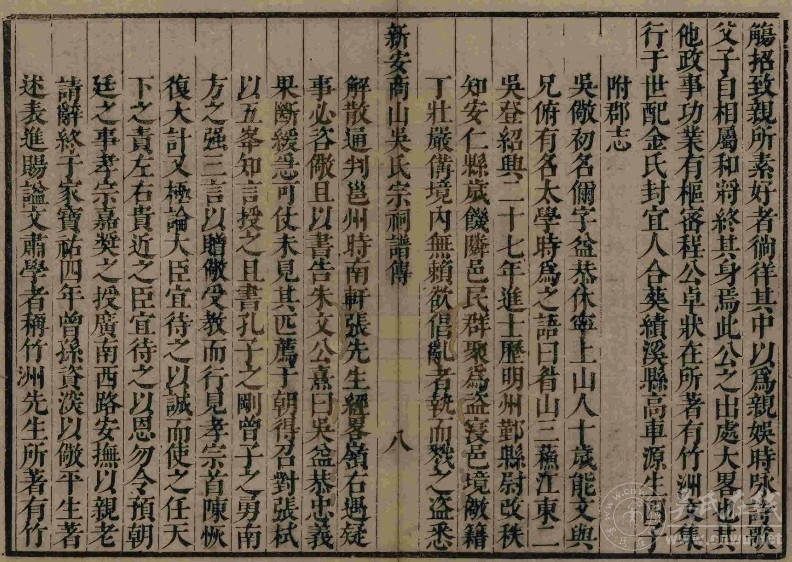 觴招致親所素好者徜徉其中以爲親娛時咏詩歌
父子自相屬和將終其身焉此公之出處大畧也其
他政事功業有樞密程公卓狀在所著有竹洲文集
行于世配金氏封宜人合葬績溪縣高車源生四子
附郡志
吳儆初名偁字益恭休寧上山人十歲能文與
兄俯有名太學時爲之語曰眉山三蘇江東二
吳登紹興二十七年進士歷明州鄞縣尉改秩
知安仁縣歲饑隣邑民群聚爲盜寇邑境儆籍
丁壯嚴備境內無賴欲倡亂者執而戮之盜悉
新安商山吳氏宗祠譜傳
八
解散通判邕州時南軒張先生經畧嶺右遇疑
事必咨儆且以書告朱文公熹曰吳益恭忠義
果斷緩急可仗未見其匹薦于朝得召對張栻
以五峯知言授之且書孔子之剛曾子之勇南
方之强三言以贈儆受教而行見孝宗首陳恢
復大計又極論大臣宜待之以誠而使之任天
下之責左右貴近之臣宜待之以恩勿令預朝
廷之事孝宗嘉奬之授廣南西路安撫以親老
請辭終于家寶祐四年曾孫資深以儆平生著
述表進賜謚文肅學者稱竹洲先生所著有竹